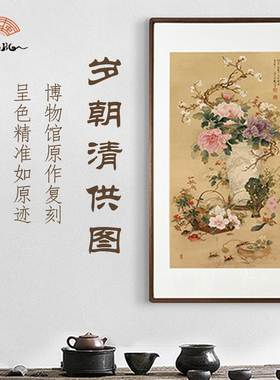 岁朝清供图
博物馆原作复刻
呈色精准如原迹